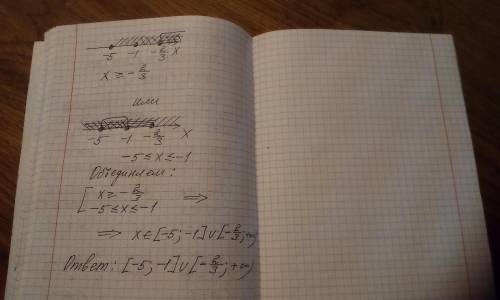 -5 -1 -2/3 x
x ≥ -2/3
или
-5 -1 -2/3 x
-5 ≤ x ≤ -1
Объединяем:
[ x ≥ -2/3
-5 ≤ x ≤ -1 ⟹
⟹ x ∈ [-5; -1] ∪ [-2/3; +∞)
Ответ: [-5; -1] ∪ [-2/3; +∞)